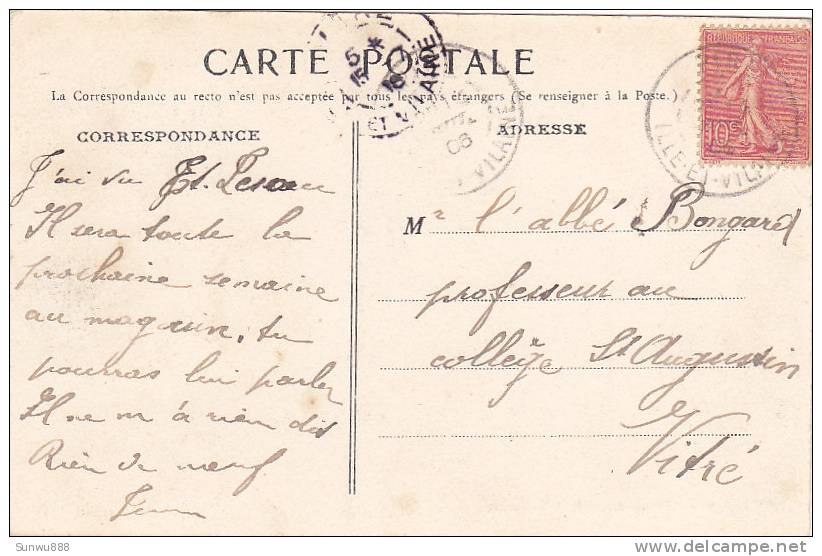 CARTE POSTALE
La Correspondance au recto n'est pas acceptée par tous les pays étrangers (Se renseigner à la Poste.)
CORRESPONDANCE
J'ai vu Et.
Il sera toute la
prochaine semaine
au magasin, tu
pourras lui parler
Il ne m'a rien dit
Rien de neuf
ADRESSE
Mr l'abbé Bongard
professeur au
collège St Augustin
Vitré
RÉPUBLIQUE FRANÇAISE
10c
ILLE-ET-VILAINE
ET VILAINE
VILAINE
06
Sunwu888
www.delcampe.net